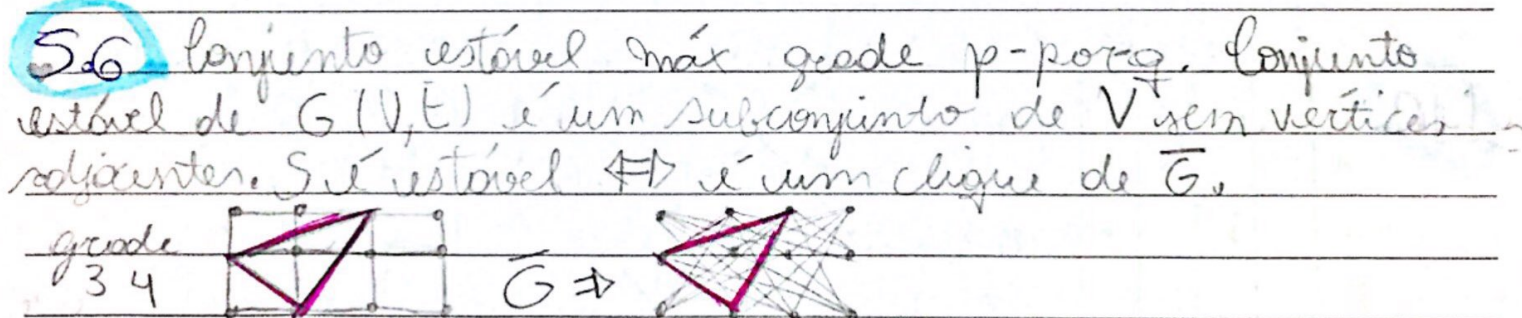 5.6 Conjunto estável máx grade p-por-q. Conjunto
estável de G(V,E) é um subconjunto de V sem vértices
adjacentes. S é estável ⇔ é um clique de G̅.
grade
3 4 G̅ ⇒